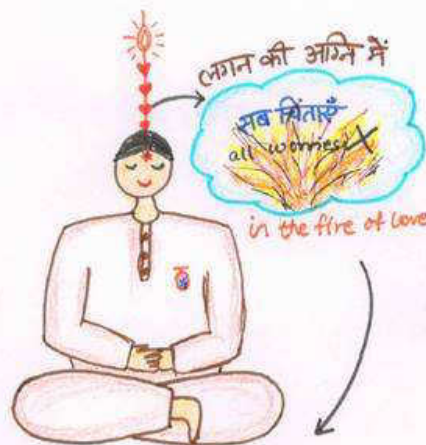 लगन की अग्नि में
सब चिंताएँ
all worries
in the fire of love